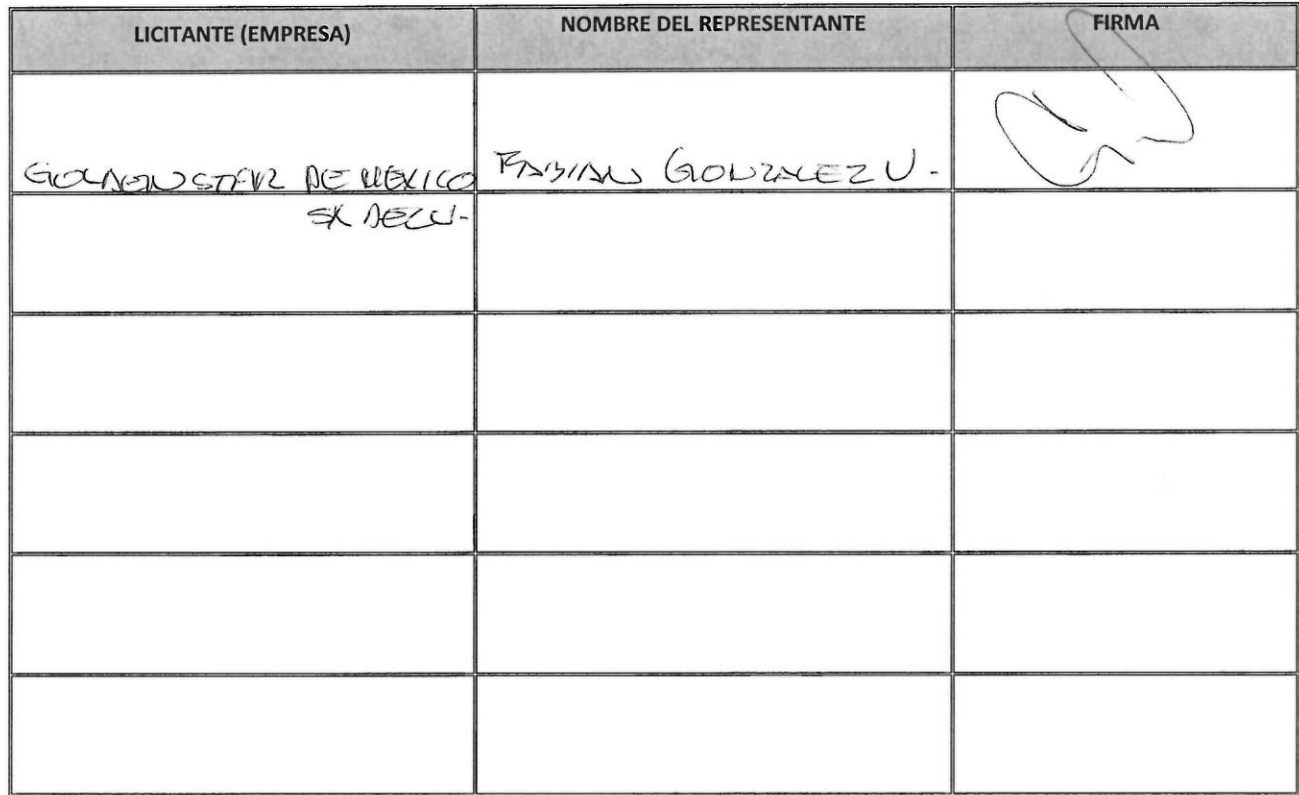 LICITANTE (EMPRESA) NOMBRE DEL REPRESENTANTE FIRMA
GOLDEN STAR DE MEXICO FABIAN GONZALEZ U.
SA DE CV.